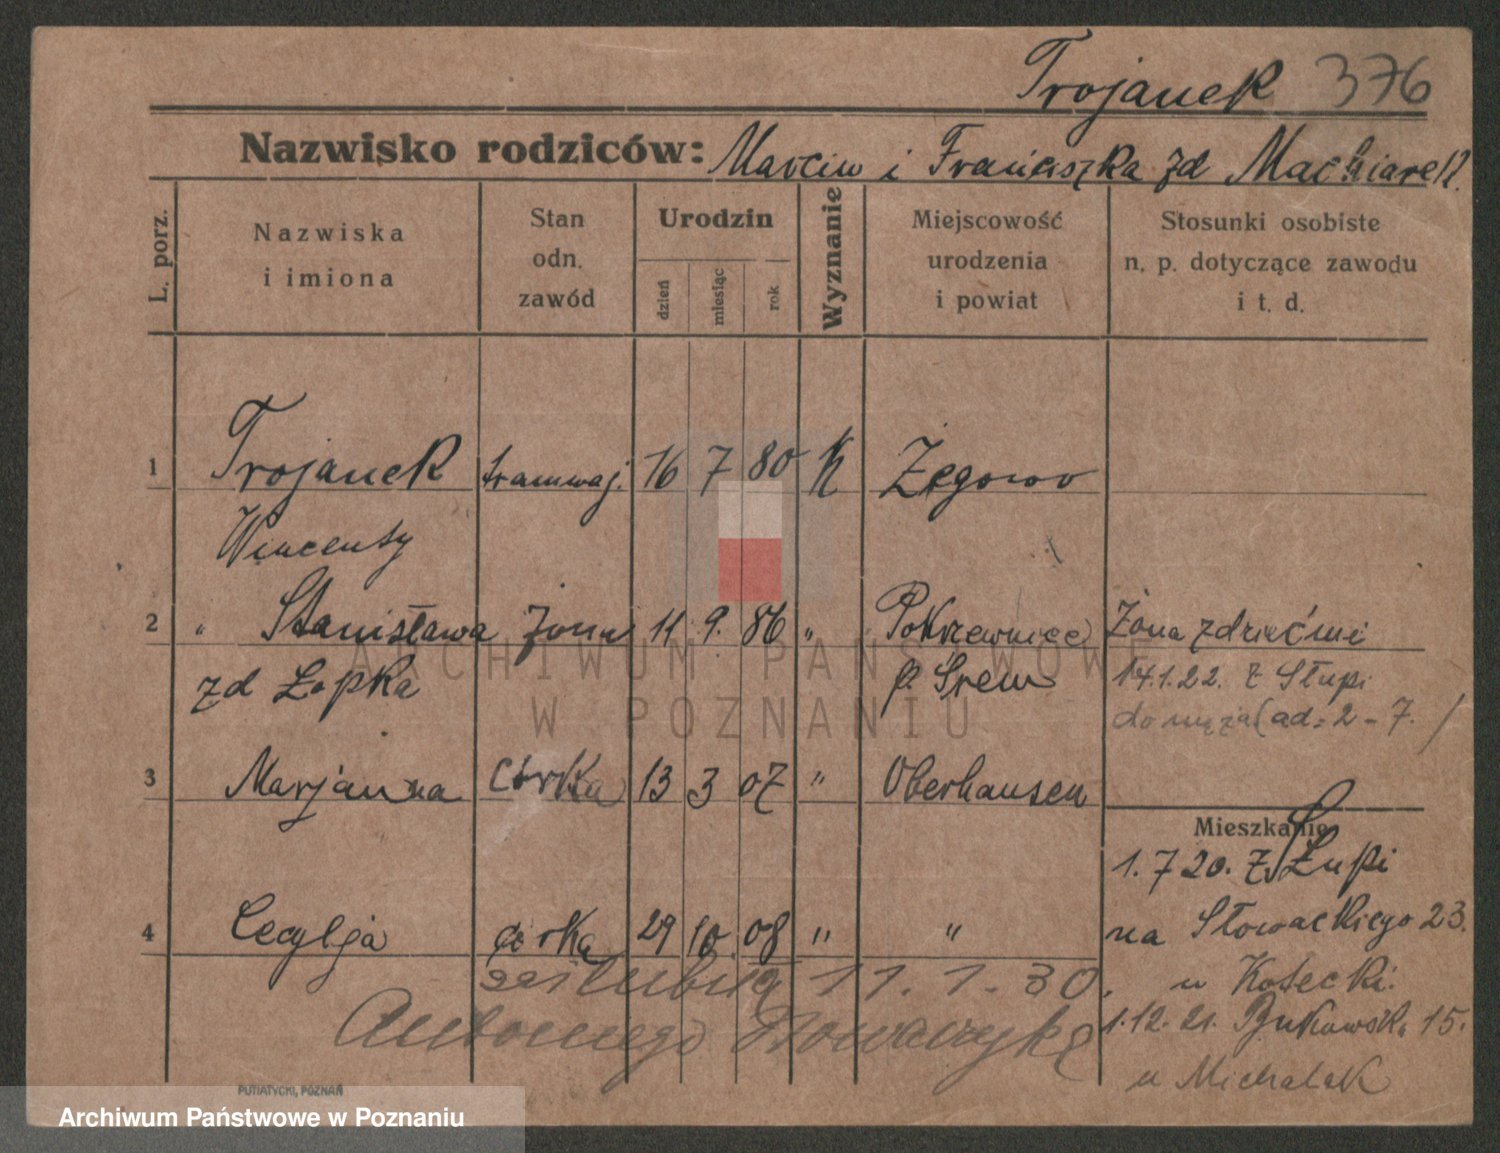 Trojanek 376
Nazwisko rodziców: Marcin i Franciszka zd Machiarek.
L. porz.
Nazwiska
i imiona
Stan
odn.
zawód
Urodzin
dzień
miesiąc
rok
Wyznanie
Miejscowość
urodzenia
i powiat
Stosunki osobiste
n. p. dotyczące zawodu
i t. d.
1 Trojanek tramwaj. 16 7 80 K Żegowo
Wincenty
2 " Stanisława żona 11 9. 86 " Pokrzewnice Żona z dziećmi
zd Łopka p. Śrem 14.1.22. z Słupi
do męża (ad: 2 - 7.
3 Marjanna córka 13 3 07 " Oberhausen
Mieszkanie
1.7 20. z Słupi
4 Cecylja córka 29 10. 08 " " na Słowackiego 23.
zaślubiła 11.1.30. u Kotecki.
Antoniego Nowaczyka 1.12.21. Bukowska 15.
u Michalak
PUTIATYCKI, POZNAŃ
ARCHIWUM PAŃSTWOWE
W POZNANIU
Archiwum Państwowe w Poznaniu